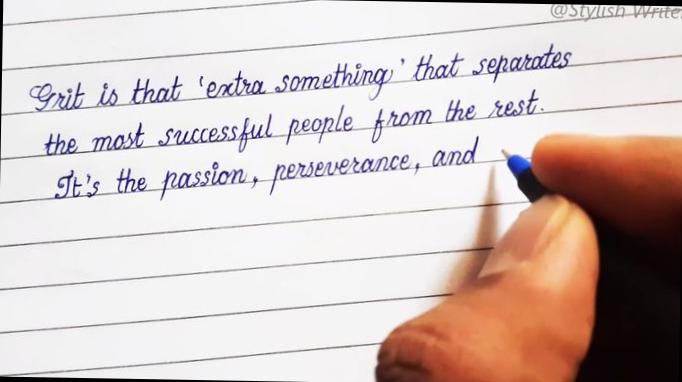 @Stylish Write
Grit is that 'extra something' that separates
the most successful people from the rest.
It's the passion, perseverance, and